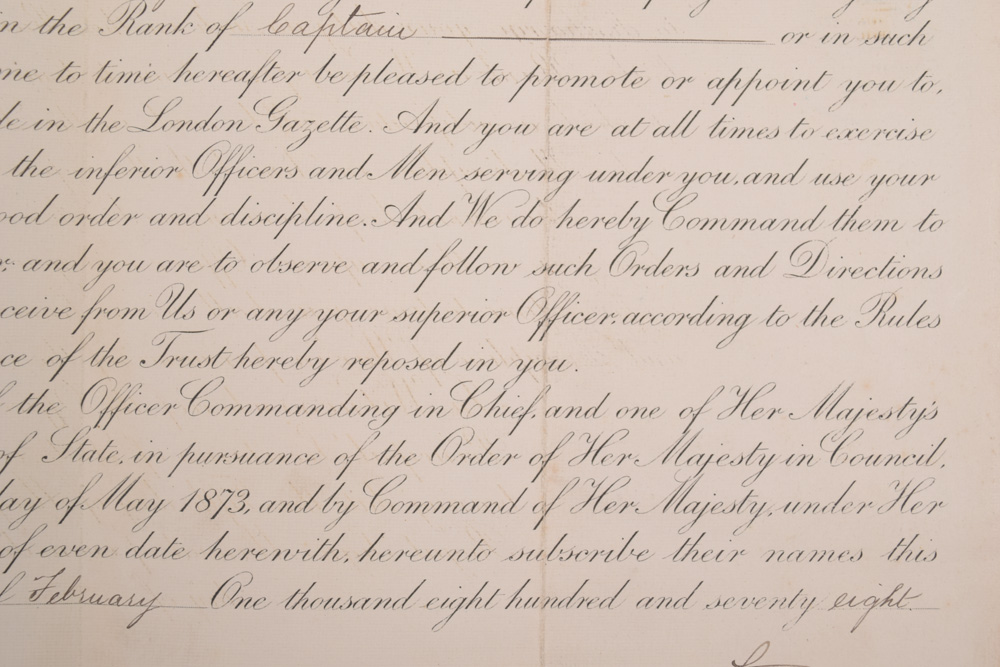 in the Rank of Captain or in such
to time hereafter be pleased to promote or appoint you to,
in the London Gazette. And you are at all times to exercise
the inferior Officers and Men serving under you, and use your
order and discipline. And We do hereby Command them to
and you are to observe and follow such Orders and Directions
from Us or any your superior Officer, according to the Rules
of the Trust hereby reposed in you.
the Officer Commanding in Chief, and one of Her Majesty's
of State, in pursuance of the Order of Her Majesty in Council,
of May 1873, and by Command of Her Majesty, under Her
of even date herewith, hereunto subscribe their names this
February One thousand eight hundred and seventy eight.